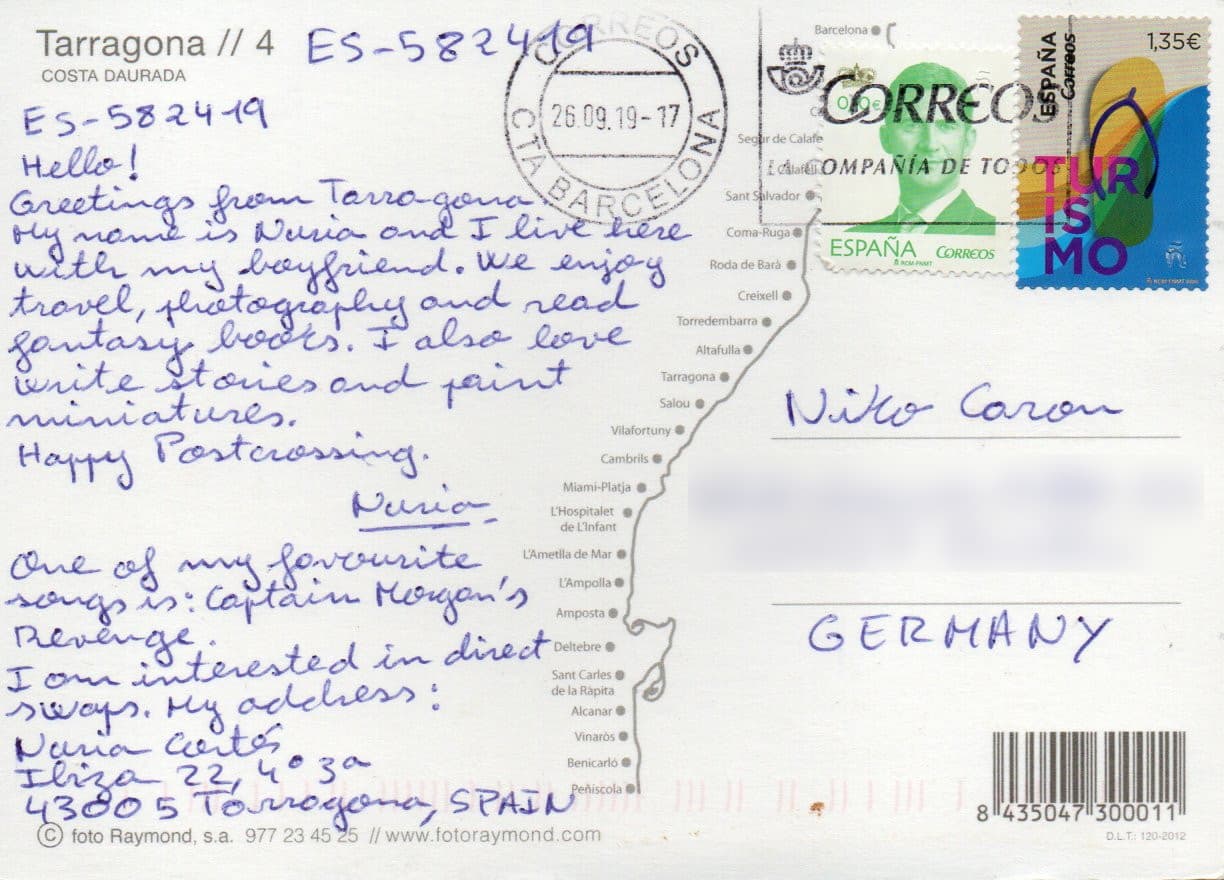 Tarragona // 4
COSTA DAURADA
ES-582419
ES-582419
Hello!
Greetings from Tarragona
My name is Nuria and I live here
with my boyfriend. We enjoy
travel, photography and read
fantasy books. I also love
write stories and paint
miniatures.
Happy Postcrossing.
Nuria
One of my favourite
songs is: Captain Morgan's
Revenge.
I am interested in direct
swaps. My address:
Nuria Cortés
Ibiza 22, 4º 3ª
43005 Tarragona, SPAIN
© foto Raymond, s.a. 977 23 45 25 // www.fotoraymond.com
CORREOS
26.09.19-17
CTA BARCELONA
CORREOS
LA COMPAÑÍA DE TODOS
ESPAÑA CORREOS
RCM-FNMT
ESPAÑA
Correos
1,35€
TUR
IS
MO
Barcelona
Segur de Calafe
Calafell
Sant Salvador
Coma-Ruga
Roda de Barà
Creixell
Torredembarra
Altafulla
Tarragona
Salou
Vilafortuny
Cambrils
Miami-Platja
L'Hospitalet
de L'Infant
L'Ametlla de Mar
L'Ampolla
Amposta
Deltebre
Sant Carles
de la Ràpita
Alcanar
Vinaròs
Benicarló
Peñíscola
Niko Caron
GERMANY
8 435047 300011
D.L.T.: 120-2012